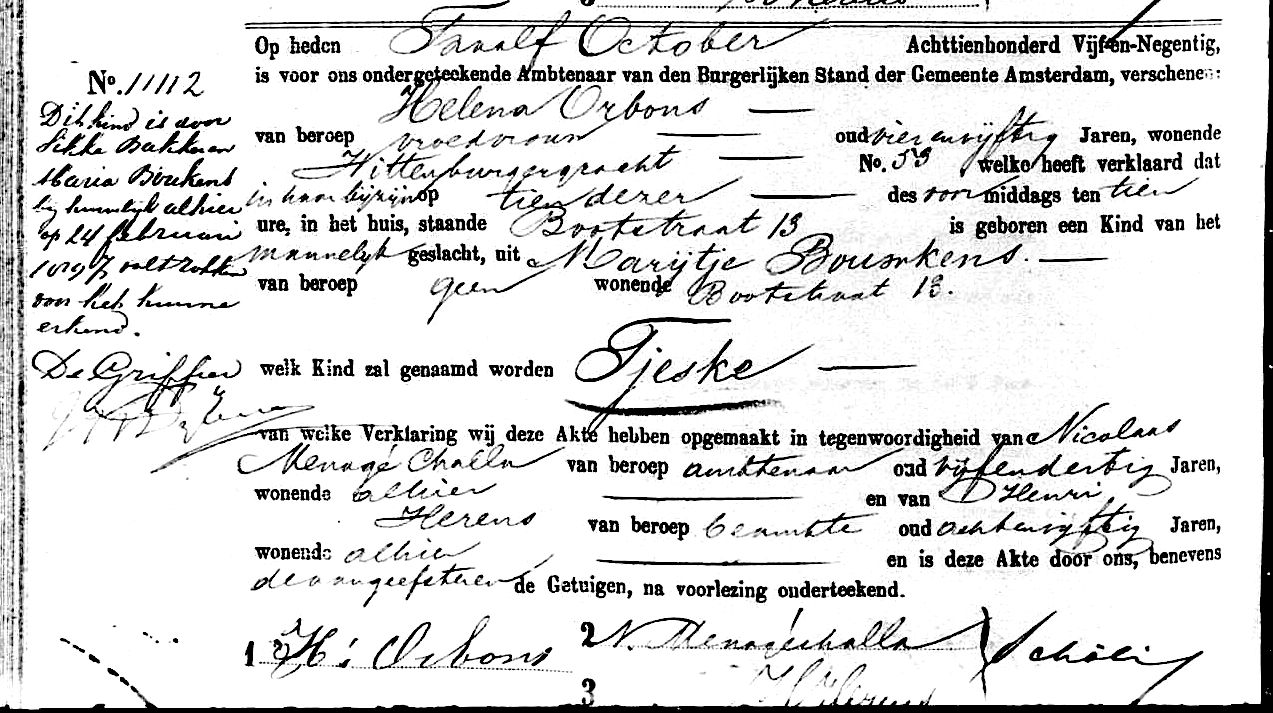 Op heden Twaalf October Achttienhonderd Vijf-en-Negentig,
is voor ons ondergeteekende Ambtenaar van den Burgerlijken Stand der Gemeente Amsterdam, verschenen:
Helena Orbons
van beroep vroedvrouw oud vier en vijftig Jaren, wonende
Wittenburgergracht No. 53 welke heeft verklaard dat
in haar bijzijn op tien dezer des voormiddags ten tien
ure, in het huis, staande Bootstraat 13 is geboren een Kind van het
mannelijk geslacht, uit Marijtje
van beroep geen wonende Bootstraat 13.
welk Kind zal genaamd worden Tjeske
van welke Verklaring wij deze Akte hebben opgemaakt in tegenwoordigheid van Nicolaas
Menagé Challa van beroep ambtenaar oud vijfendertig Jaren,
wonende alhier en van Henri
Herens van beroep beambte oud achtenvijftig Jaren,
wonende alhier en is deze Akte door ons, benevens
de aangeefster en de Getuigen, na voorlezing onderteekend.
1 H: Orbons 2 N. Menagéchalla
3 HHerens
No. 11112
Dit kind is door
Sikke Bakker en
Maria
bij huwelijk alhier
op 24 februari
1897 voltrokken
voor het hunne
erkend.
De Griffier